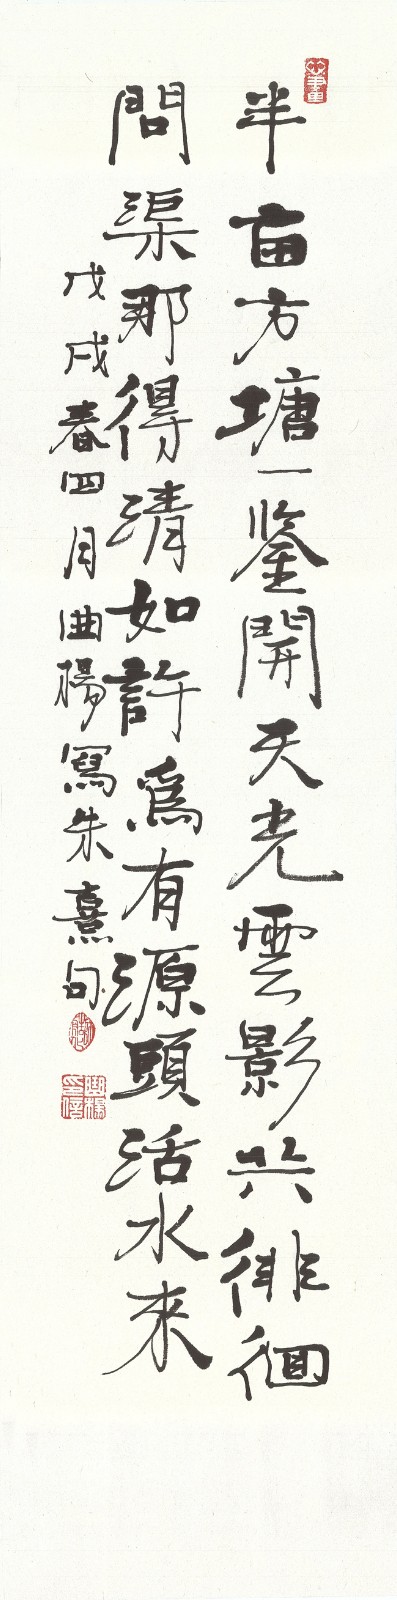 半畝方塘一鑒開天光雲影共徘徊
問渠那得清如許為有源頭活水來
戊戌春四月曲楊寫朱熹句